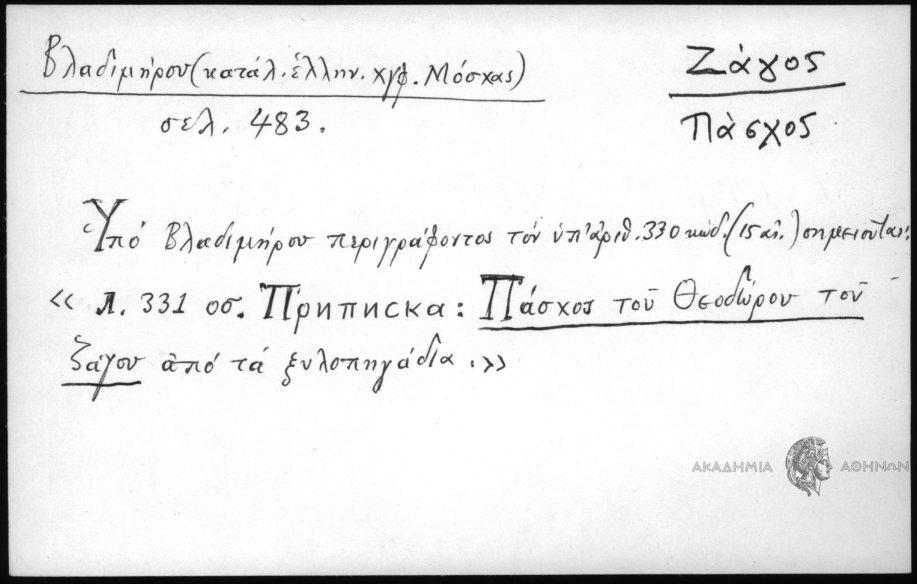 Βλαδιμήρου (κατάλ. ἑλλην. χγφ. Μόσχας)
σελ. 483.
Ζάγος
Πάσχος
Ὑπό Βλαδιμήρου περιγράφοντος τόν ὑπ' ἀριθ. 330 κώδ. (15 αἰ.) σημειοῦται:
« л. 331 об. Приписка: Πάσχος τοῦ Θεοδώρου τοῦ
ζάγου ἀπό τά ξυλοπηγάδια .»
ΑΚΑΔΗΜΙΑ ΑΘΗΝΩΝ